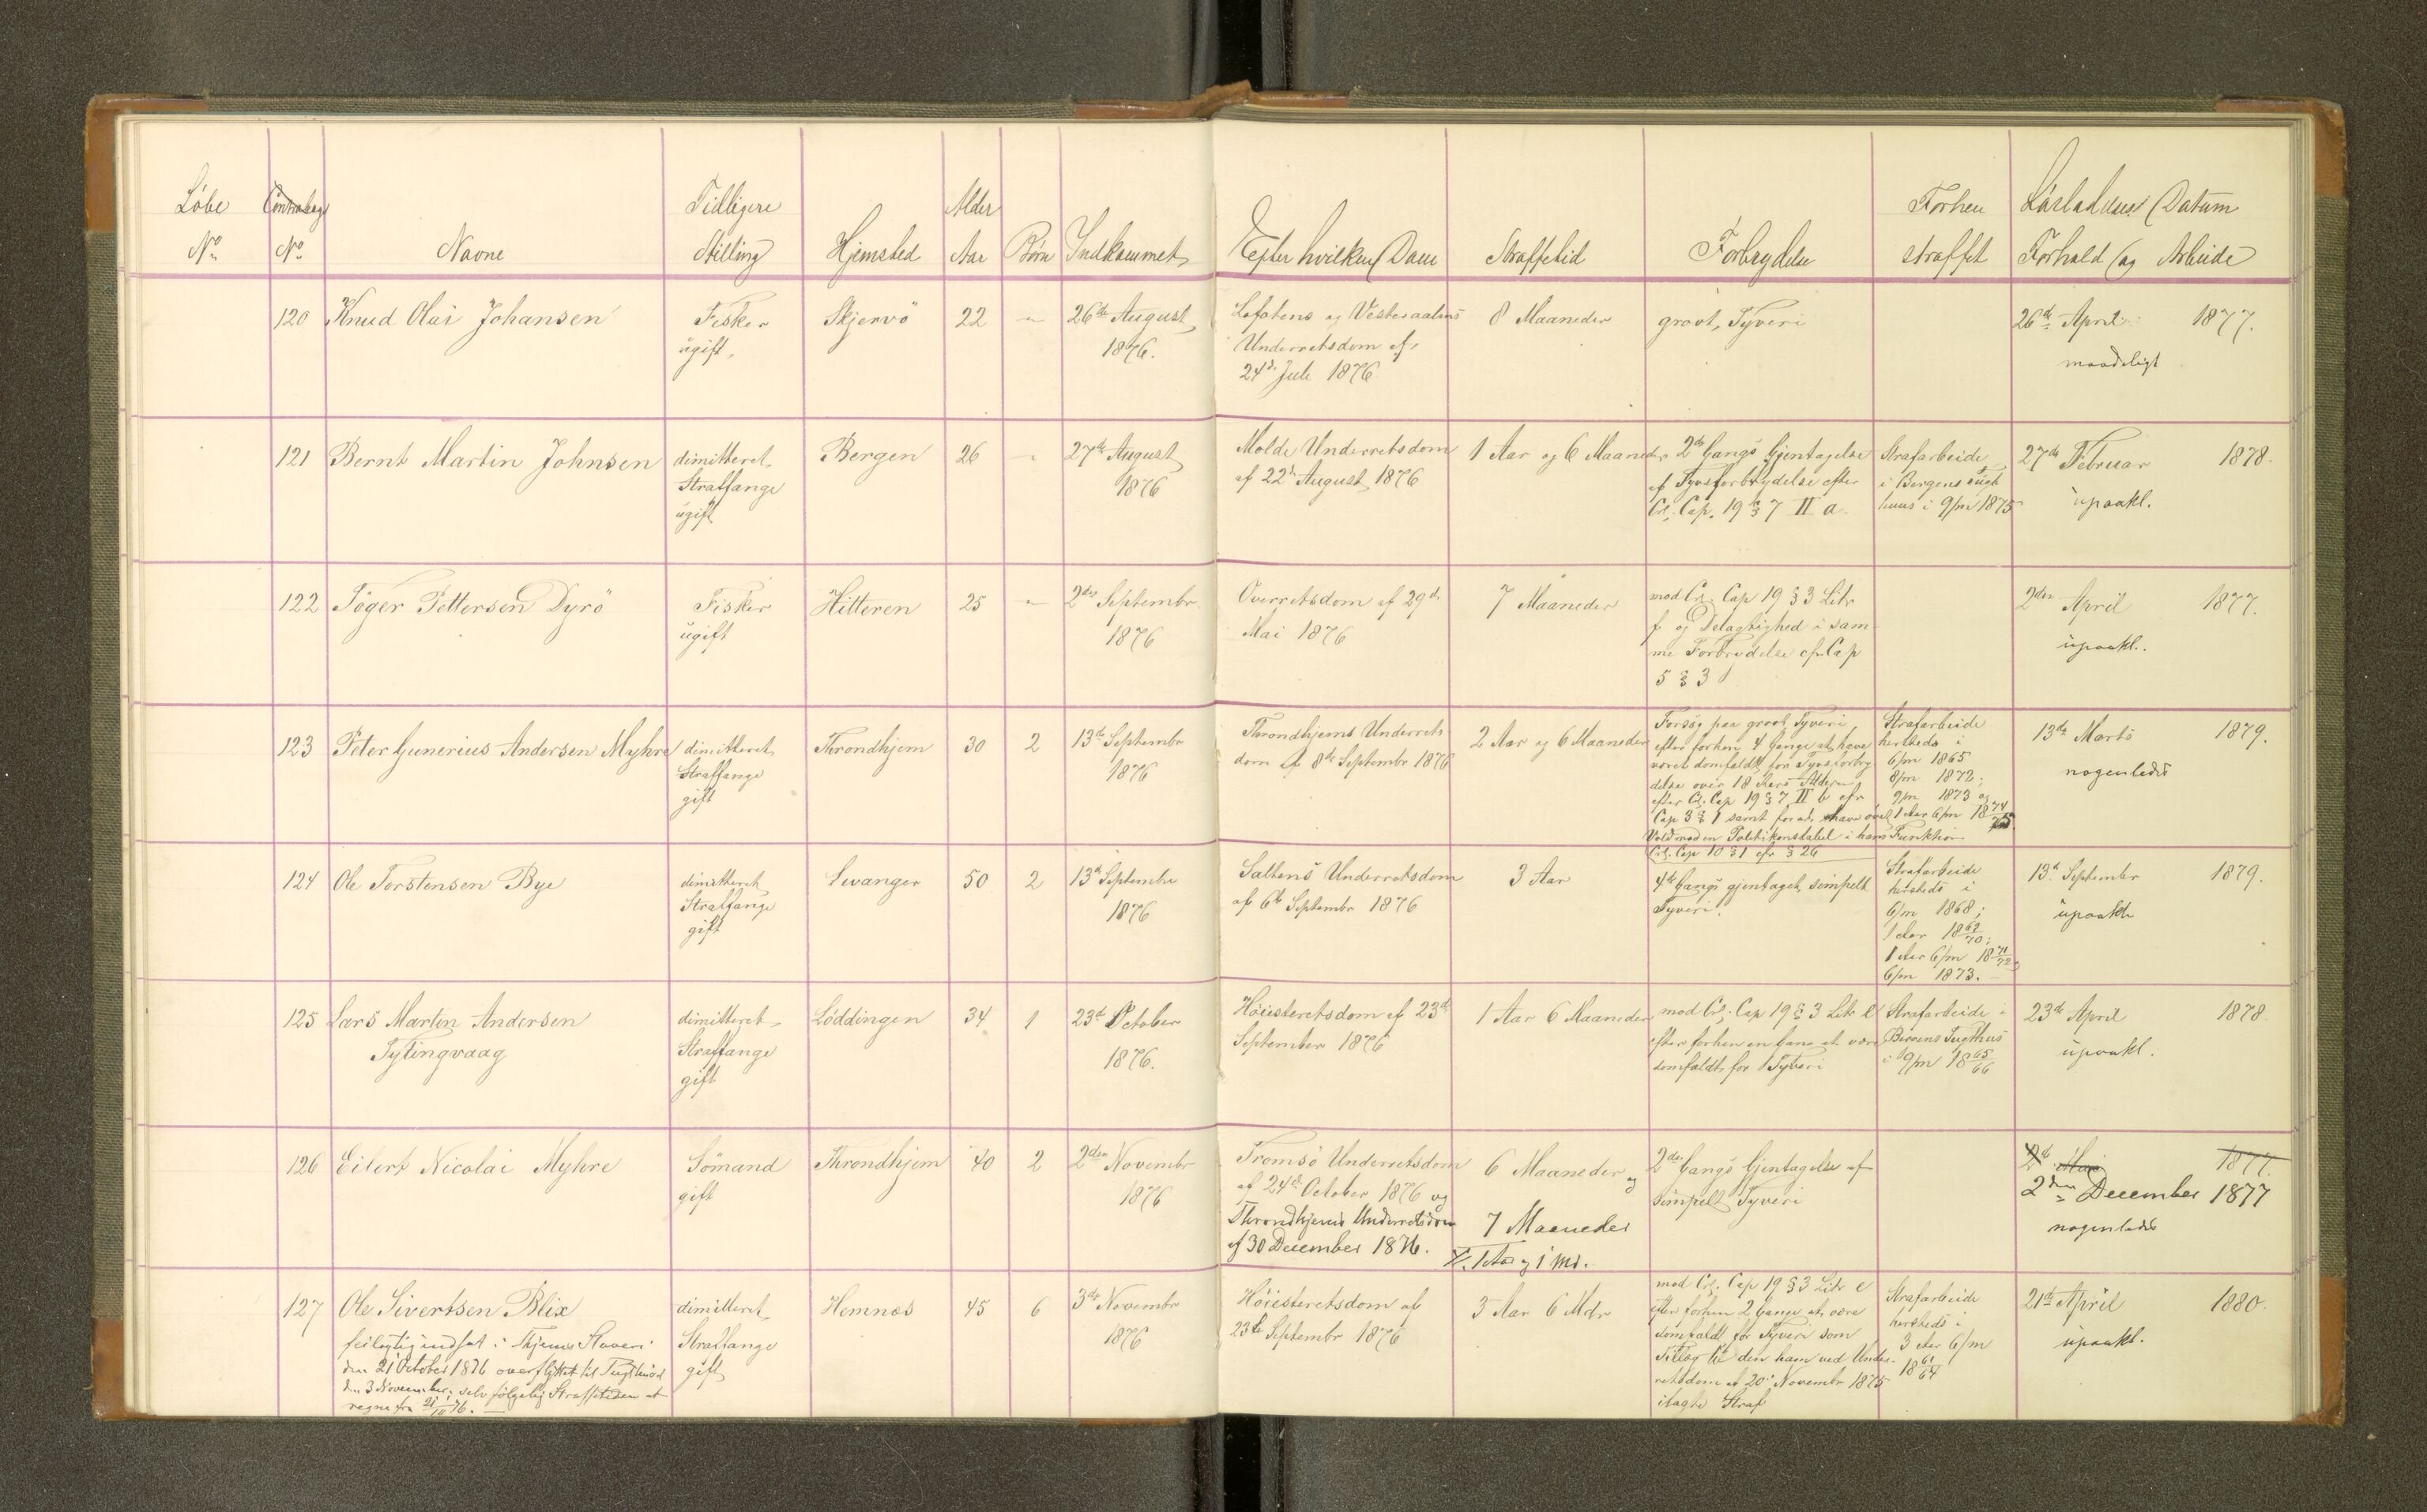 Løbe Contrabog Tidligere Alder Forhen Løsladelses Datum
No No Navne Stilling Hjemsted Aar Børn Indkommet Efter hvilken Dom Straffetid Forbrydelse straffet Forhold og Arbeide
120 Knud Olai Johansen Fisker Skjervö 22 " 26de August Lofotens og Vesteraalens 8 Maaneder grovt Tyveri 26de April 1877.
ugift, 1876. Underretsdom af maadeligt
24de Juli 1876
121 Bernt Martin Johnsen dimitteret Bergen 26 " 27de August Molde Underretsdom 1 Aar og 6 Maaneder 2den Gangs Gjentagelse Strafarbeide 27de Februar 1878.
Straffange 1876 af 22de August 1876 af Tyvsforbrydelse efter i Bergens Tugt upaakl.
ugift Crl. Cap. 19 § 7 II a. huus i 9/m 1875
122 Töger Pettersen Dyrö Fisker Hitteren 25 " 2den Septembr Overretsdom af 29de 7 Maaneder mod Crl. Cap 19 § 3 Litr 2den April 1877.
ugift 1876 Mai 1876 f og Delagtighed i sam upaakl.
me Forbrydelse cfr Cap
5 § 3
123 Peter Gunerius Andersen Myhre dimitteret Throndhjem 30 2 13de Septembr Throndhjems Underrets 2 Aar og 6 Maaneder Forsøg paa grovt Tyveri Strafarbeide 13de Marts 1879.
Straffange 1876 dom af 8de Septembr 1876 efter forhen 4 Gange at have hersteds i nogenledes
gift været domfældt for Tyvsforbry 6/m 1865
delse over 18 Aars Alderen 8/m 1872;
efter Crl. Cap 19 § 7 II b cfr 9/m 1873 og
Cap 3 § 1 samt for at have øvet 1 Aar 6/m 1874/75
Vold mod en Politikonstabel i hans Funktion
Crl. Cap 10 § 1 cfr § 26
124 Ole Torstensen Bye dimitteret Levanger 50 2 13de Septembr Saltens Underretsdom 3 Aar 4de Gangs gjentaget simpelt Strafarbeide 13de September 1879.
Straffange 1876 af 6te Septembr 1876 Tyveri. hersteds i upaakl.
gift 6/m 1868;
1 Aar 1869/70;
1 Aar 6/m 1871/72
6/m 1873.
125 Lars Martin Andersen dimitteret Löddingen 34 1 23de October Höiesteretsdom af 23de 1 Aar 6 Maaneder mod Crl. Cap 19 § 3 Litr e Strafarbeide i 23de April 1878
Tytingvaag Straffange 1876. September 1876 efter forhen en Gang at være Bergens Tugthus upaakl.
gift domfældt for Tyveri i 9/m 1865/66
126 Eilert Nicolai Myhre Sömand Throndhjem 40 2 2den Novembr Tromsö Underretsdom 6 Maaneder og 2den Gangs Gjentagelse af 2de Mai 1877.
gift 1876 af 24de October 1876 og simpelt Tyveri 2den December 1877
Throndhjems Underretsdom 7 Maaneder nogenledes
af 30 December 1876. 1 Aar og 1 Md.
127 Ole Sivertsen Blix dimitteret Hemnæs 45 6 3de Novembr Höiesteretsdom af 3 Aar 6 Mdr mod Crl. Cap 19 § 3 Litr e Strafarbeide 21de April 1880.
feilagtig indsat i Thjems Slaveri Straffange 1876 23de Septembr 1876 efter forhen 2 Gange at være hersteds i upaakl.
den 21 October 1876 overflyttet til Tugthuset gift domfældt for Tyveri som 3 Aar 6/m
den 3 November, selv følgelig Straffetiden at Tillæg til den ham ved Under- 1861/64
regne fra 21/10 76. retsdom af 20de Novembr 1875
ilagte Straf